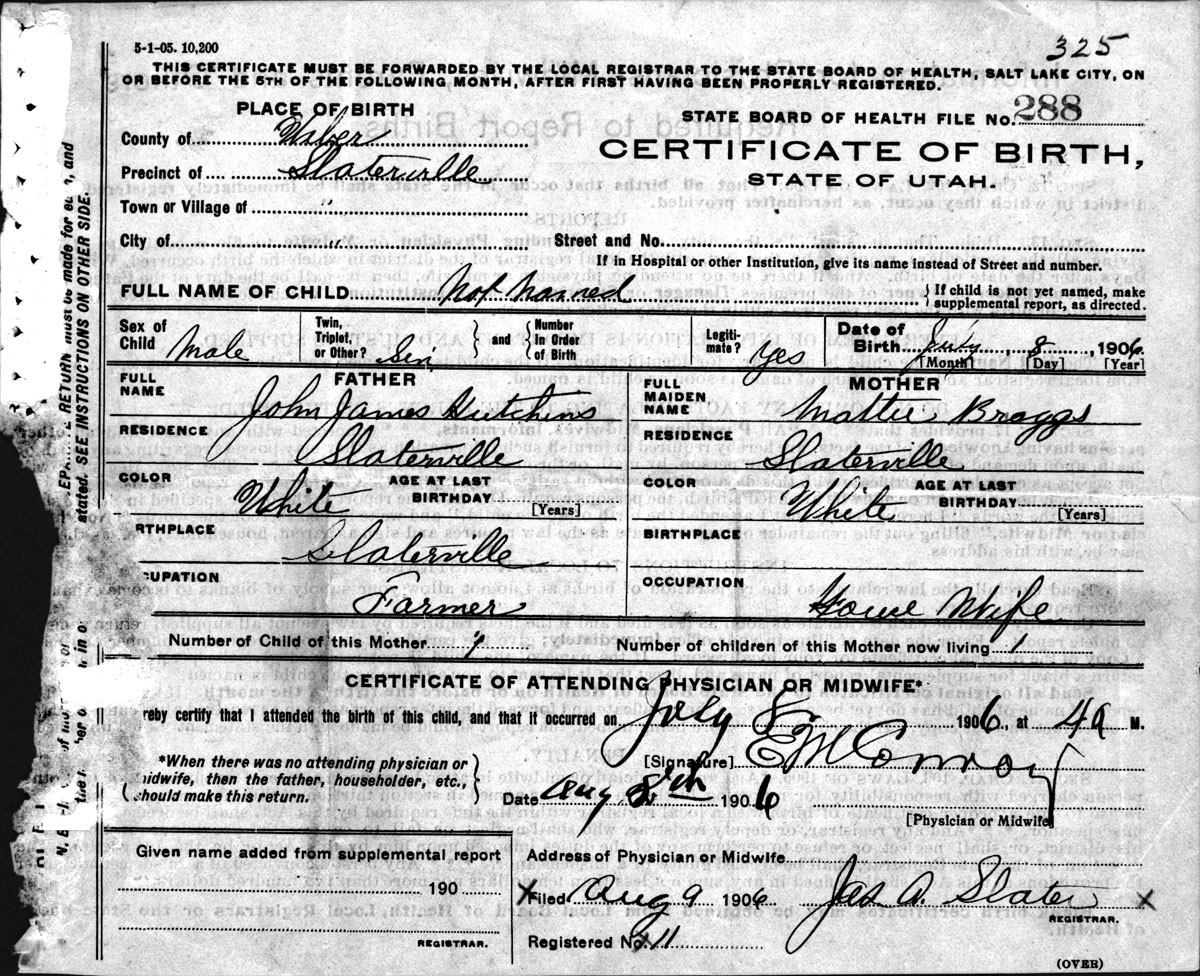 5-1-05. 10,200
325
THIS CERTIFICATE MUST BE FORWARDED BY THE LOCAL REGISTRAR TO THE STATE BOARD OF HEALTH, SALT LAKE CITY, ON
OR BEFORE THE 5TH OF THE FOLLOWING MONTH, AFTER FIRST HAVING BEEN PROPERLY REGISTERED.
PLACE OF BIRTH
STATE BOARD OF HEALTH FILE No. 288
County of Weber
CERTIFICATE OF BIRTH,
Precinct of Slaterville
STATE OF UTAH.
Town or Village of "
City of " Street and No.
If in Hospital or other Institution, give its name instead of Street and number.
FULL NAME OF CHILD Not Named {If child is not yet named, make supplemental report, as directed.
Sex of Child Male Twin, Triplet, or Other? } and { Number In Order of Birth Legiti-mate? Yes Date of Birth July 8, 1906
[Month] [Day] [Year]
FATHER MOTHER
FULL NAME John James Hutchins FULL MAIDEN NAME Mattie Braggs
RESIDENCE Slaterville RESIDENCE Slaterville
COLOR White AGE AT LAST BIRTHDAY [Years] COLOR White AGE AT LAST BIRTHDAY [Years]
RTHPLACE Slaterville BIRTHPLACE
CUPATION Farmer OCCUPATION House Wife
Number of Child of this Mother 1 Number of children of this Mother now living 1
CERTIFICATE OF ATTENDING PHYSICIAN OR MIDWIFE*
reby certify that I attended the birth of this child, and that it occurred on July 8 1906, at 4 a M.
*When there was no attending physician or
midwife, then the father, householder, etc.,
should make this return.
[Signature] E M Conroy
Date Aug 8th 1906
[Physician or Midwife
Given name added from supplemental report
190
REGISTRAR.
Address of Physician or Midwife
X Filed Aug 9 1906 Jas A. Slater X
REGISTRAR.
Registered No. 11
(OVER)
EPARATE RETURN must be made for each, and
stated. SEE INSTRUCTIONS ON OTHER SIDE.